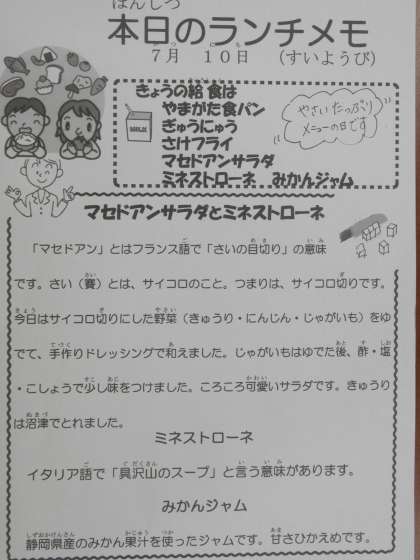 ほんじつ
本日のランチメモ
7月 10日 (すいようび)
きょうの給食は
やまがた食パン
ぎゅうにゅう
さけフライ
マセドアンサラダ
ミネストローネ みかんジャム
やさいたっぷり
メニューの日です
MILK
マセドアンサラダとミネストローネ
「マセドアン」とはフランス語で「さいの目切り」の意味
です。さい（賽）とは、サイコロのこと。つまりは、サイコロ切りです。
今日はサイコロ切りにした野菜（きゅうり・にんじん・じゃがいも）をゆ
でて、手作りドレッシングで和えました。じゃがいもはゆでた後、酢・塩
・こしょうで少し味をつけました。ころころ可愛いサラダです。きゅうり
は沼津でとれました。
ミネストローネ
イタリア語で「具沢山のスープ」と言う意味があります。
みかんジャム
静岡県産のみかん果汁を使ったジャムです。甘さひかえめです。